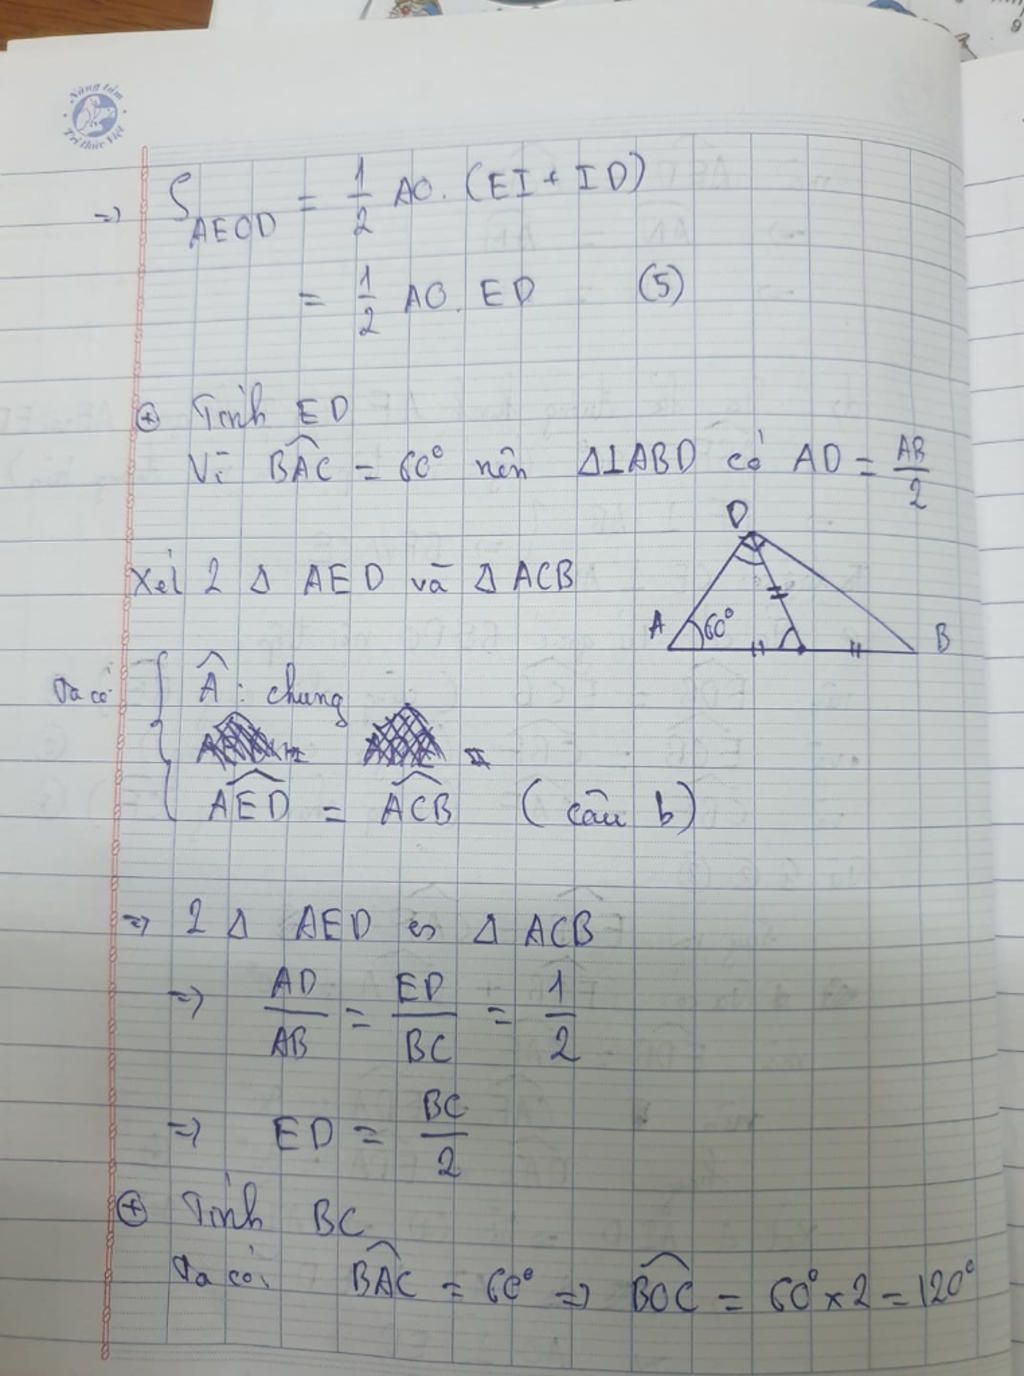 Nâng tầm
Trí thức Việt
=> S_AEOD = 1/2 AO. (EI + ID)
= 1/2 AO. ED (5)
⊕ Tính ED
Vì BAC = 60° nên Δ⊥ABD có AD = AB/2
Xét 2 Δ AED và Δ ACB
D
A 60° B
Ta có { Â : chung
AED = ACB (câu b)
=> 2 Δ AED ∽ Δ ACB
=> AD/AB = ED/BC = 1/2
=> ED = BC/2
⊕ Tính BC
Ta có: BAC = 60° => BOC = 60° x 2 = 120°